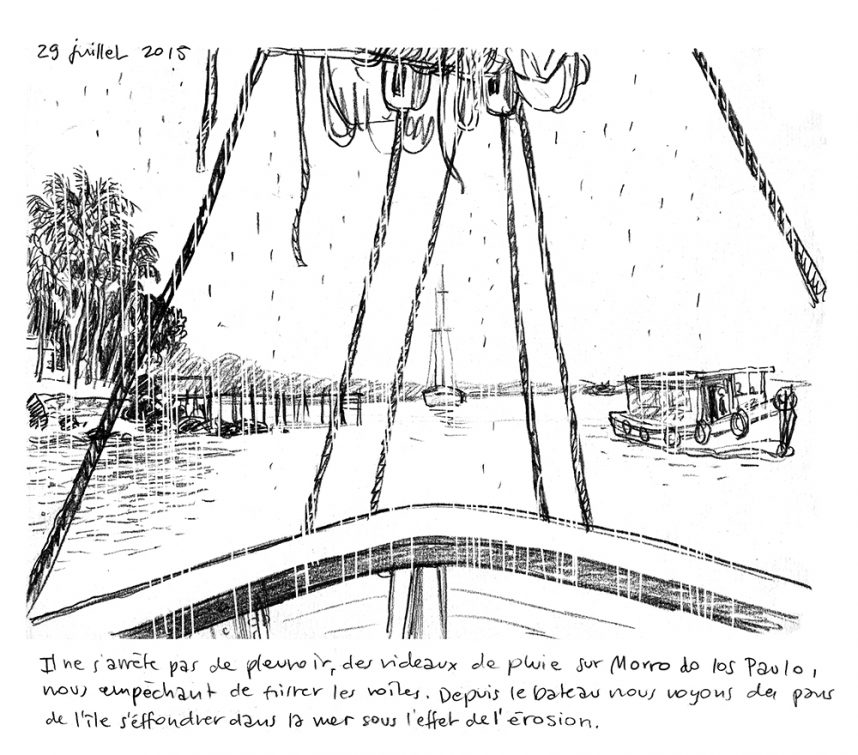 29 juillet 2015
Il ne s'arrête pas de pleuvoir, des rideaux de pluie sur Morro do los Paulo,
nous empêchant de hisser les voiles. Depuis le bateau nous voyons des pans
de l'île s'éffondrer dans la mer sous l'effet de l'érosion.